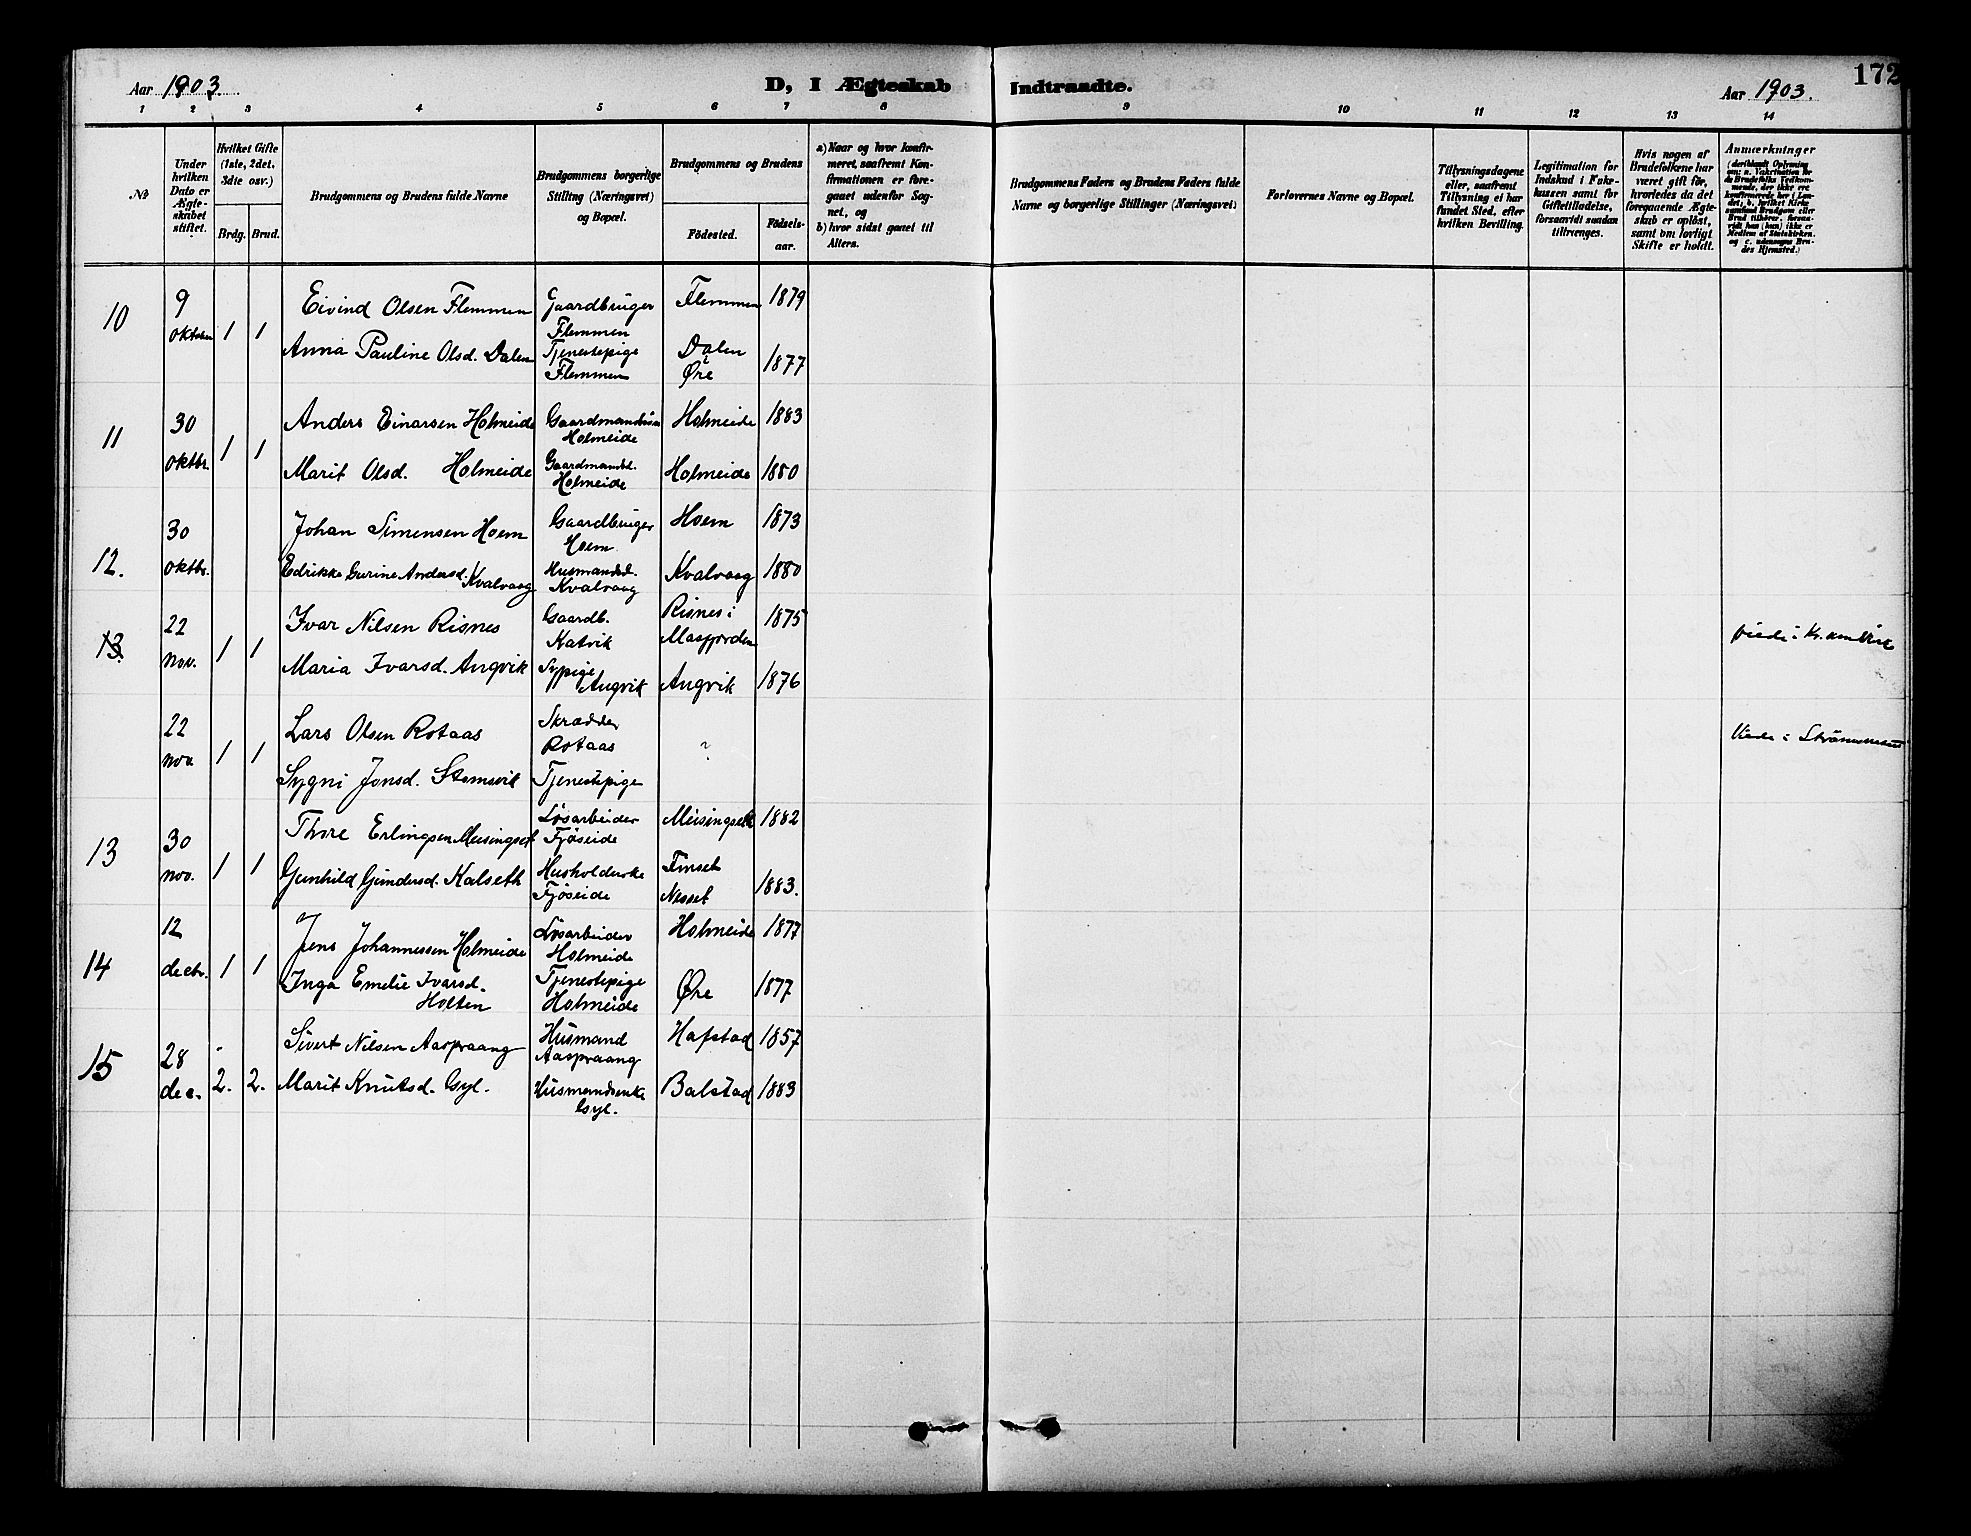 Aar 1903.
D, I Ægteskab Indtraadte.
Aar 1903.
172
1 2 3 4 5 6 7 8 9 10 11 12 13 14
№
Under hvilken Dato er Ægteskabet stiftet.
Hvilket Gifte (1ste, 2det, 3die osv.)
Brdg. Brud.
Brudgommens og Brudens fulde Navne
Brudgommens borgerlige Stilling (Næringsvei) og Bopæl.
Brudgommens og Brudens
Födested.
Födselsaar.
a) Naar og hvor konfirmeret, saafremt Konfirmationen er foregaaet udenfor Sognet, og
b) hvor sidst gaaet til Alters.
Brudgommens Faders og Brudens Faders fulde Navne og borgerlige Stillinger (Næringsvei)
Forlovernes Navne og Bopæl.
Tillysningsdagene eller, saafremt Tillysning ei har fundet Sted, efter hvilken Bevilling.
Legitimation for Indskud i Enkekassen samt for Giftetilladelse, forsaavidt saadan tiltrænges.
Hvis nogen af Brudefolkene har været gift för, hvorledes da det foregaaende Ægteskab er oplöst, samt om lovligt Skifte er holdt.
Anmærkninger
10
9 oktober
1 1
Eivind Olsen Flemmen
Gaardbruger Flemmen
Flemmen 1879
Anna Pauline Olsd. Dalen
Tjenestepige Flemmen
Dalen Øre
1877
11
30 oktbr.
1 1
Anders Einarsen Holmeide
Holmeide
Holmeide 1883
Marit Olsd. Holmeide
Gaardmandsd. Holmeide
Holmeide 1880
12.
30 oktbr.
Johan Simensen Hoem
Gaardbruger Hoem
Hoem 1873
Edrikke Gurine Andersd. Kvalvaag
Husmandsd. Kvalvaag
Kvalvaag 1880
13.
22 nov.
1 1
Ivar Nilsen Risnes
Gaardb. Katvik
Risnes i Masfjorden
1875
Maria Ivarsd. Angvik
Sypige Angvik
Angvik 1876
22 nov
1 1
Lars Olsen Rotaas
Skrædder Rotaas
?
Viede i
Sygni Jonsd. Stomsvik
Tjenestepige
13
30 nov.
1 1
Thore Erlingsen Meisingset
Løsarbeider Fjøseide
Meisingset 1882
Gunhild Gundersd. Kalseth
Fjøseide
Finset Nesset
1883.
14
12 decbr.
1 1
Jens Johannessen Holmeide
Løsarbeider Holmeide
Holmeide 1877
Inga Emelie Ivarsd. Holten
Tjenestepige Holmeide
Øre 1877
15
28 dec.
2. 2.
Sivert Nilsen Aaspraang
Husmand Aaspraang
Hafstad 1857
Marit Knutsd. Gyl.
Husmandsenke Gyl.
Balstad 1883